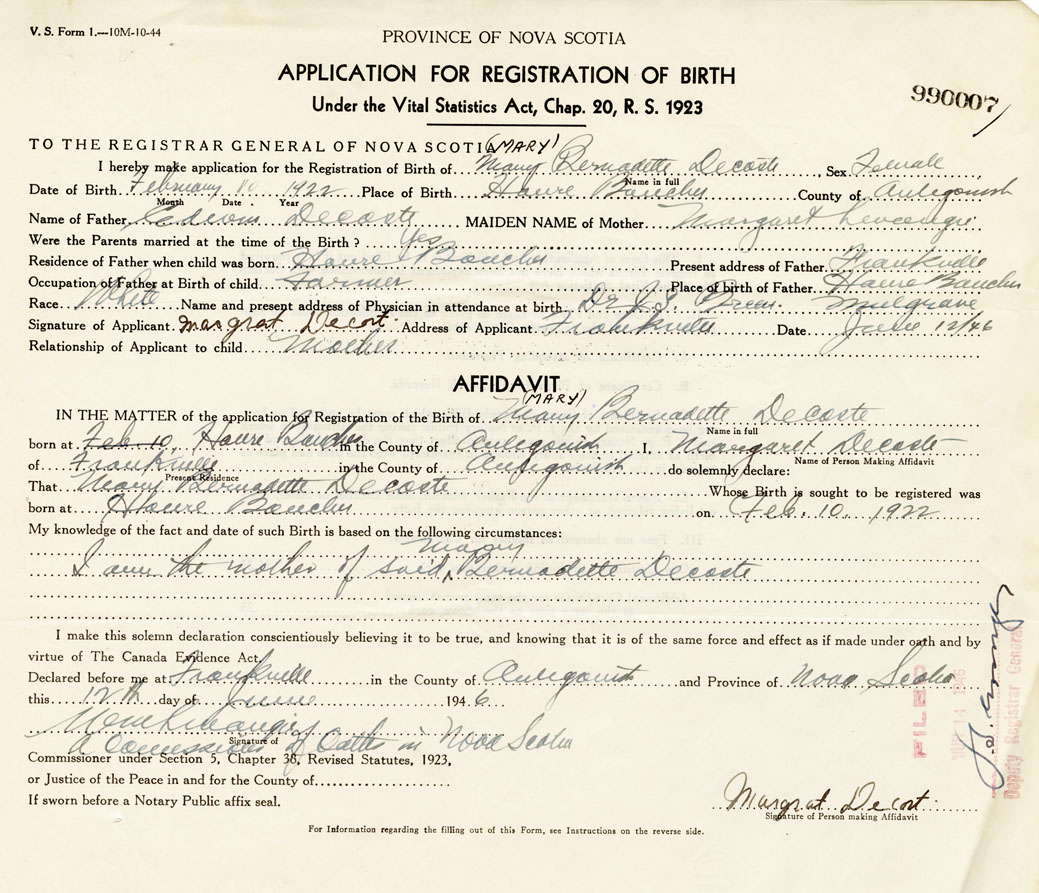 V. S. Form 1.—10M-10-44
PROVINCE OF NOVA SCOTIA
APPLICATION FOR REGISTRATION OF BIRTH
Under the Vital Statistics Act, Chap. 20, R. S. 1923
990007
TO THE REGISTRAR GENERAL OF NOVA SCOTIA (MARY)
I hereby make application for the Registration of Birth of Mary Bernadette Decoste Sex Female
Name in full
Date of Birth February 10 1922 Place of Birth Havre Boucher County of Antigonish
Month Date Year
Name of Father Edwin Decoste MAIDEN NAME of Mother Margaret
Were the Parents married at the time of the Birth ? Yes
Residence of Father when child was born Havre Boucher Present address of Father Frankville
Occupation of Father at Birth of child Farmer Place of birth of Father Havre Boucher
Race White Name and present address of Physician in attendance at birth Dr J.S. Mulgrave
Signature of Applicant Margrat Decort Address of Applicant Frankville Date June 12/46
Relationship of Applicant to child Mother
AFFIDAVIT
(MARY)
IN THE MATTER of the application for Registration of the Birth of Mary Bernadette Decoste
Name in full
born at Feb 10, Havre Boucher in the County of Antigonish I, Margaret Decoste
Name of Person Making Affidavit
of Frankville in the County of Antigonish do solemnly declare:
Present Residence
That Mary Bernadette Decoste Whose Birth is sought to be registered was
born at Havre Boucher on Feb. 10, 1922
My knowledge of the fact and date of such Birth is based on the following circumstances:
Mary
I am the mother of said Bernadette Decoste
I make this solemn declaration conscientiously believing it to be true, and knowing that it is of the same force and effect as if made under oath and by
virtue of The Canada Evidence Act.
Declared before me at Frankville in the County of Antigonish and Province of Nova Scotia
this 12th day of June 1946
Signature of
A Commissioner of Oaths in Nova Scotia
Commissioner under Section 5, Chapter 38, Revised Statutes, 1923,
or Justice of the Peace in and for the County of
If sworn before a Notary Public affix seal.
Margrat Decort
Signature of Person making Affidavit
For Information regarding the filling out of this Form, see Instructions on the reverse side.
FILED
Deputy Registrar General